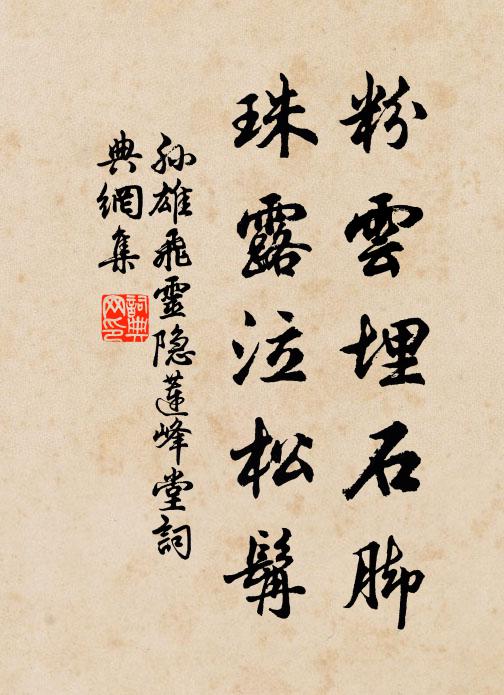 粉雲埋石脚
珠露泣松髯
孙雄飛靈隐蓮峰堂詞
典網集
詞典网印